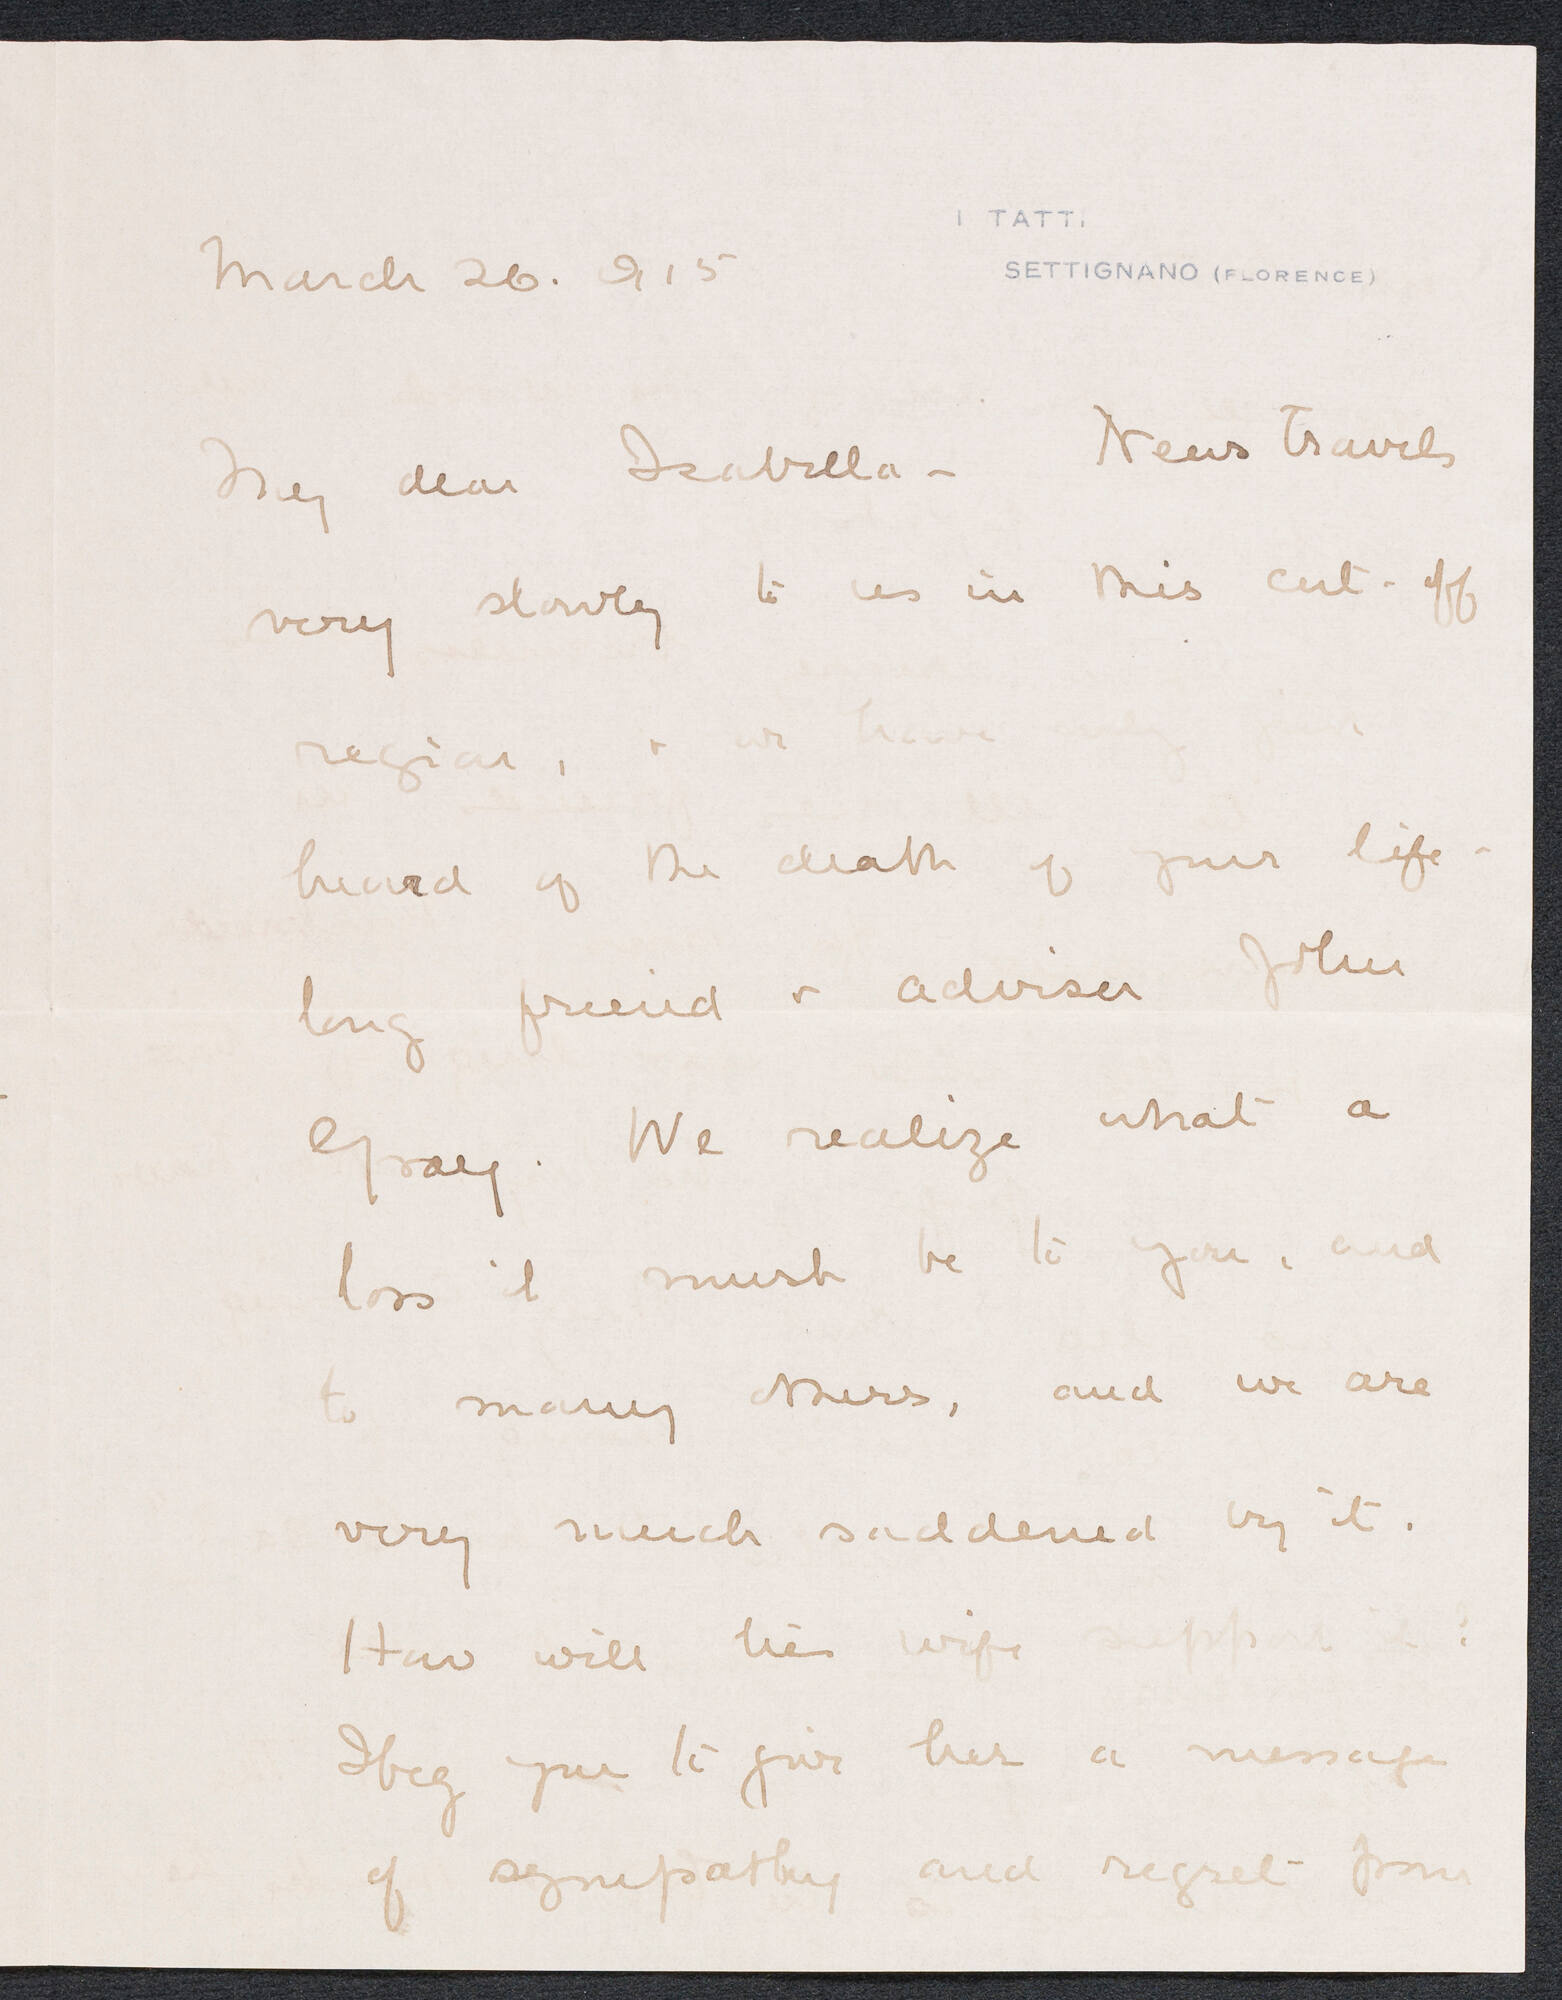 I TATTI
SETTIGNANO (FLORENCE)
March 26. 915
My dear Isabella - News travels
very slowly to us in this cut-off
region, + we have only just
heard of the death of your life-
long friend + adviser John
Gray. We realize what a
loss it must be to you, and
to many others, and we are
very much saddened by it.
How will his wife support it?
I beg you to give her a message
of sympathy and regret from